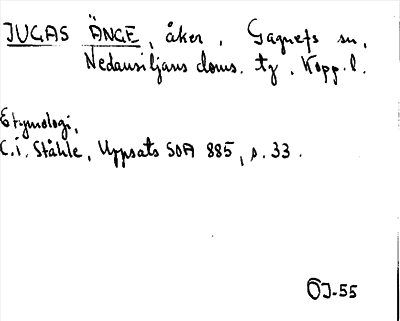 JUGAS ÄNGE, åker, Gagnefs sn,
Nedansiljans doms. tg, Kopp. l.
Etymologi,
C.i. Ståhle, Uppsats SOA 885, s. 33.
OJ-55